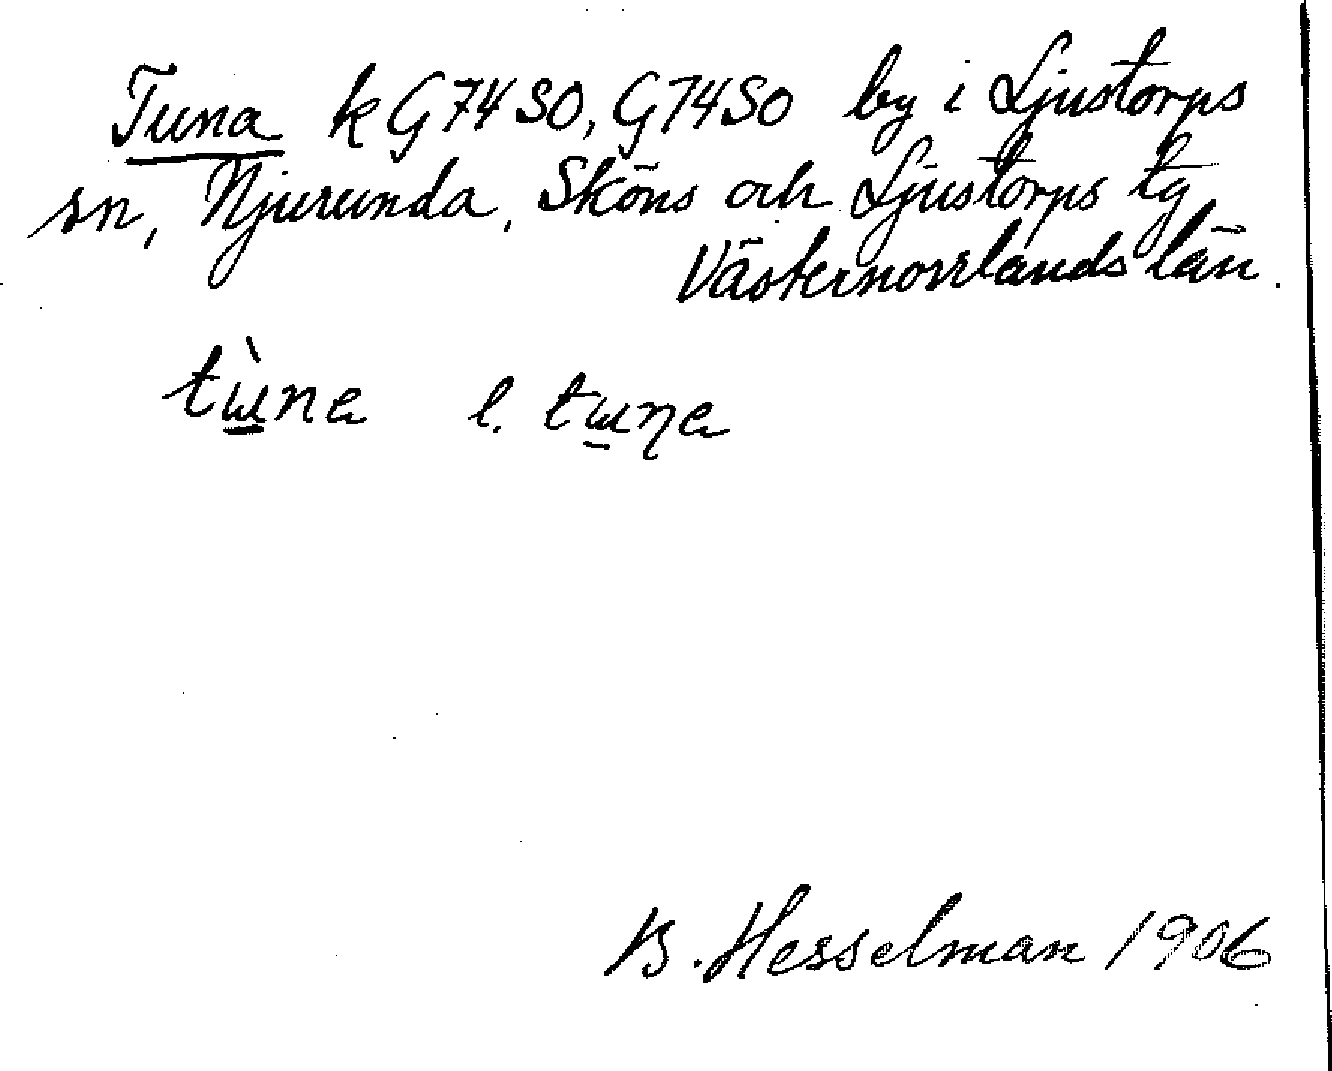 Tuna k G74SO, G74SO by i Ljustorps
sn, Njurunda, Sköns och Ljustorps tg
Västernorrlands län.
tɯ̲̀na l. tɯ̲ɳa
B. Hesselman 1906